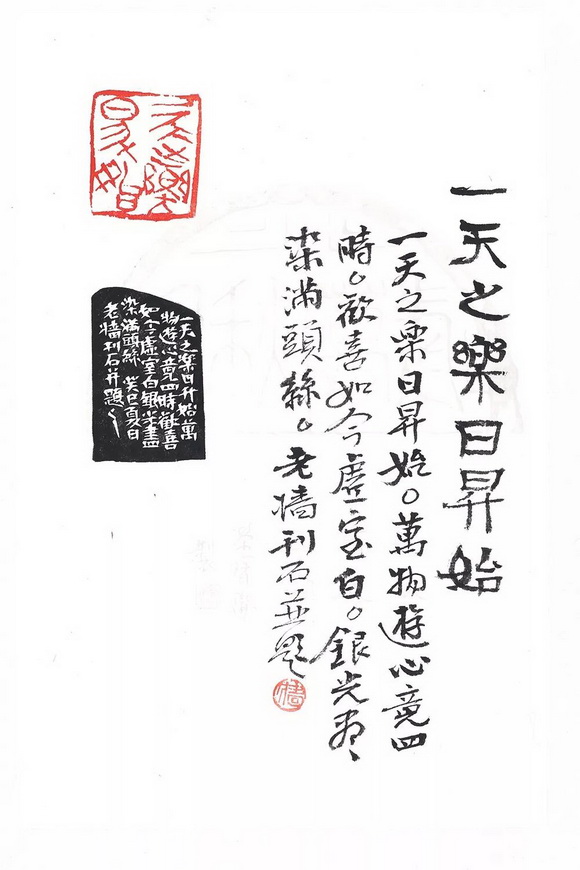 一天之樂日昇始
一天之樂日昇始。萬物遊心竟四
時。歡喜如今虛室白。銀光盡
染滿頭絲。老牆刊石並題
牆
一天之樂
日昇始
一天之樂日昇始萬
物遊心竟四時歡喜
如今虛室白銀光盡
染滿頭絲 癸巳夏日
老牆刊石并題